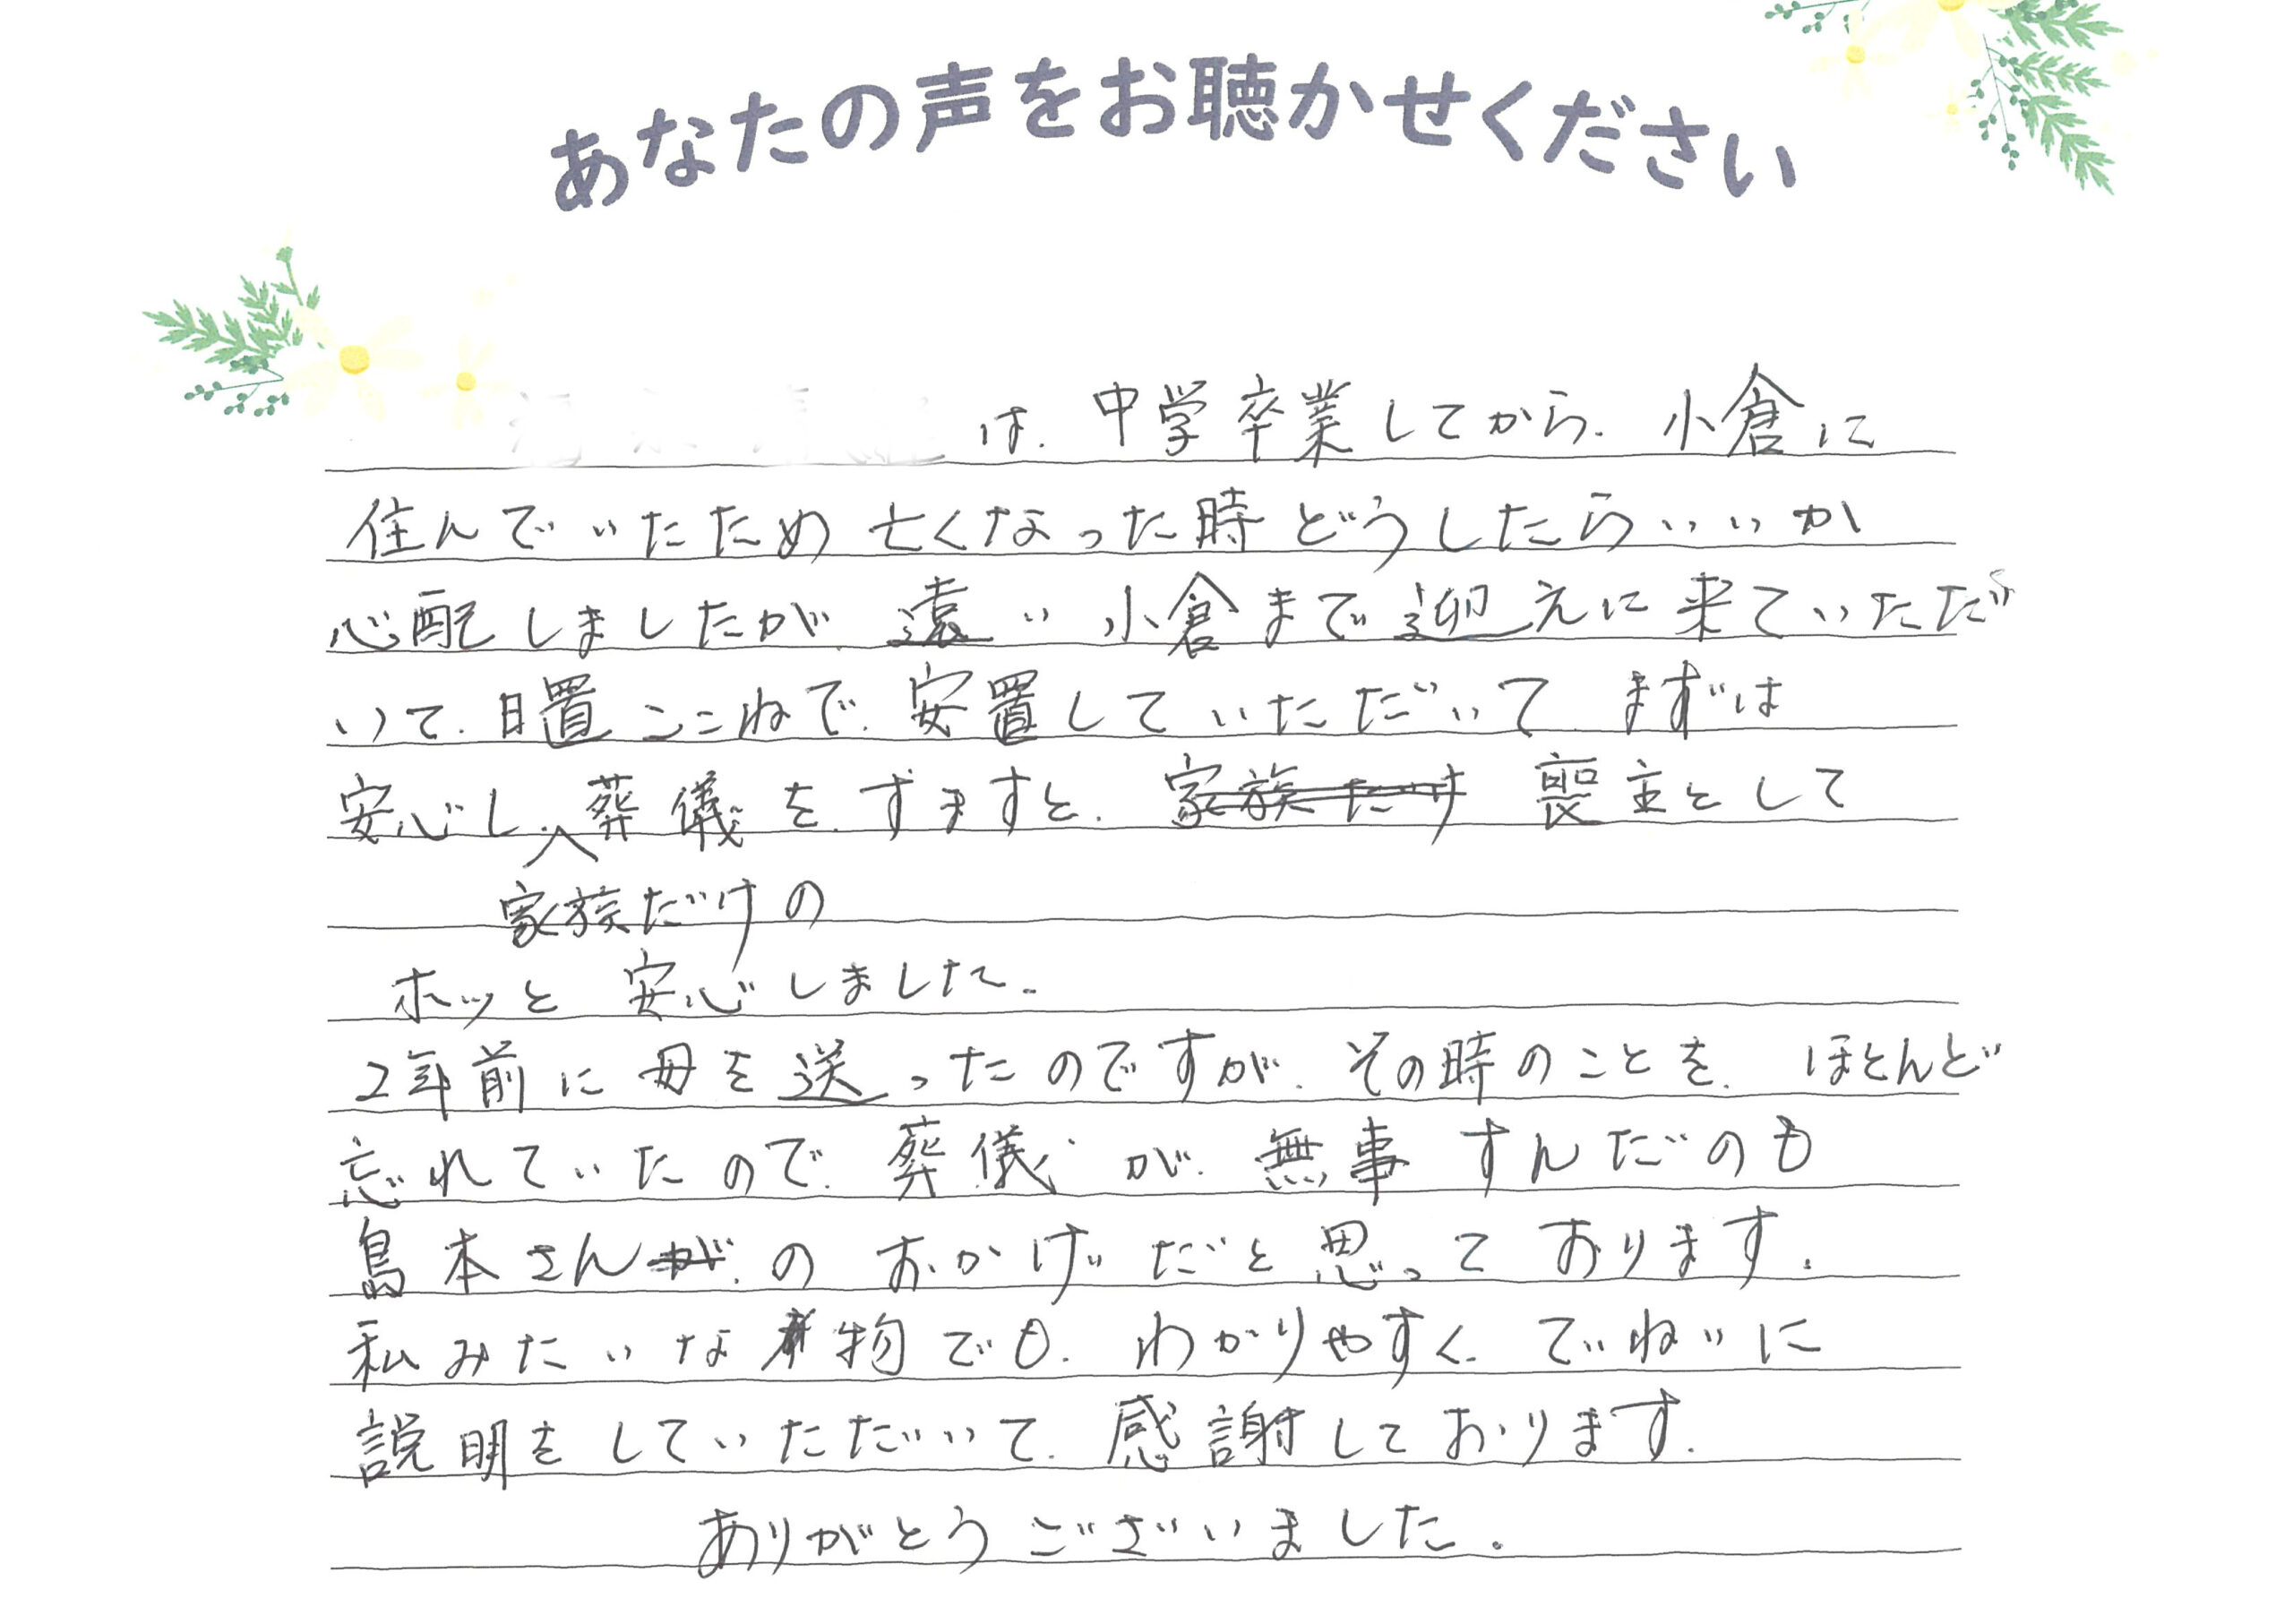 あなたの声をお聴かせください
は、中学卒業してから、小倉に
住んでいたため亡くなった時どうしたらいいか
心配しましたが、遠い小倉まで迎えに来ていただ
いて、日置ここねで、安置していただいて まずは
安心し、葬儀を、すますと、家族だけ 喪主として
家族だけの
ホッと 安心しました。
2年前に母を送ったのですが、その時のことを、ほとんど
忘れていたので、葬儀が、無事すんだのも
島本さんが、の おかげだと思って おります。
私みたいな 物でも、わかりやすく、ていねいに
説明をしていただいて、感謝しております。
ありがとうございました。